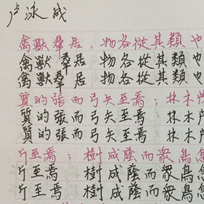 卢冰成
禽獸羣居，物各從其類也
禽獸羣居 物各從其類也
禽獸羣居 物各從其類也
質的張而弓矢至焉；林木
質的張而弓矢至焉 林木
質的張而弓矢至焉 林木
斤至焉；樹成蔭而衆鳥
斤至焉 樹成蔭而衆鳥
斤至焉 樹成蔭而衆鳥